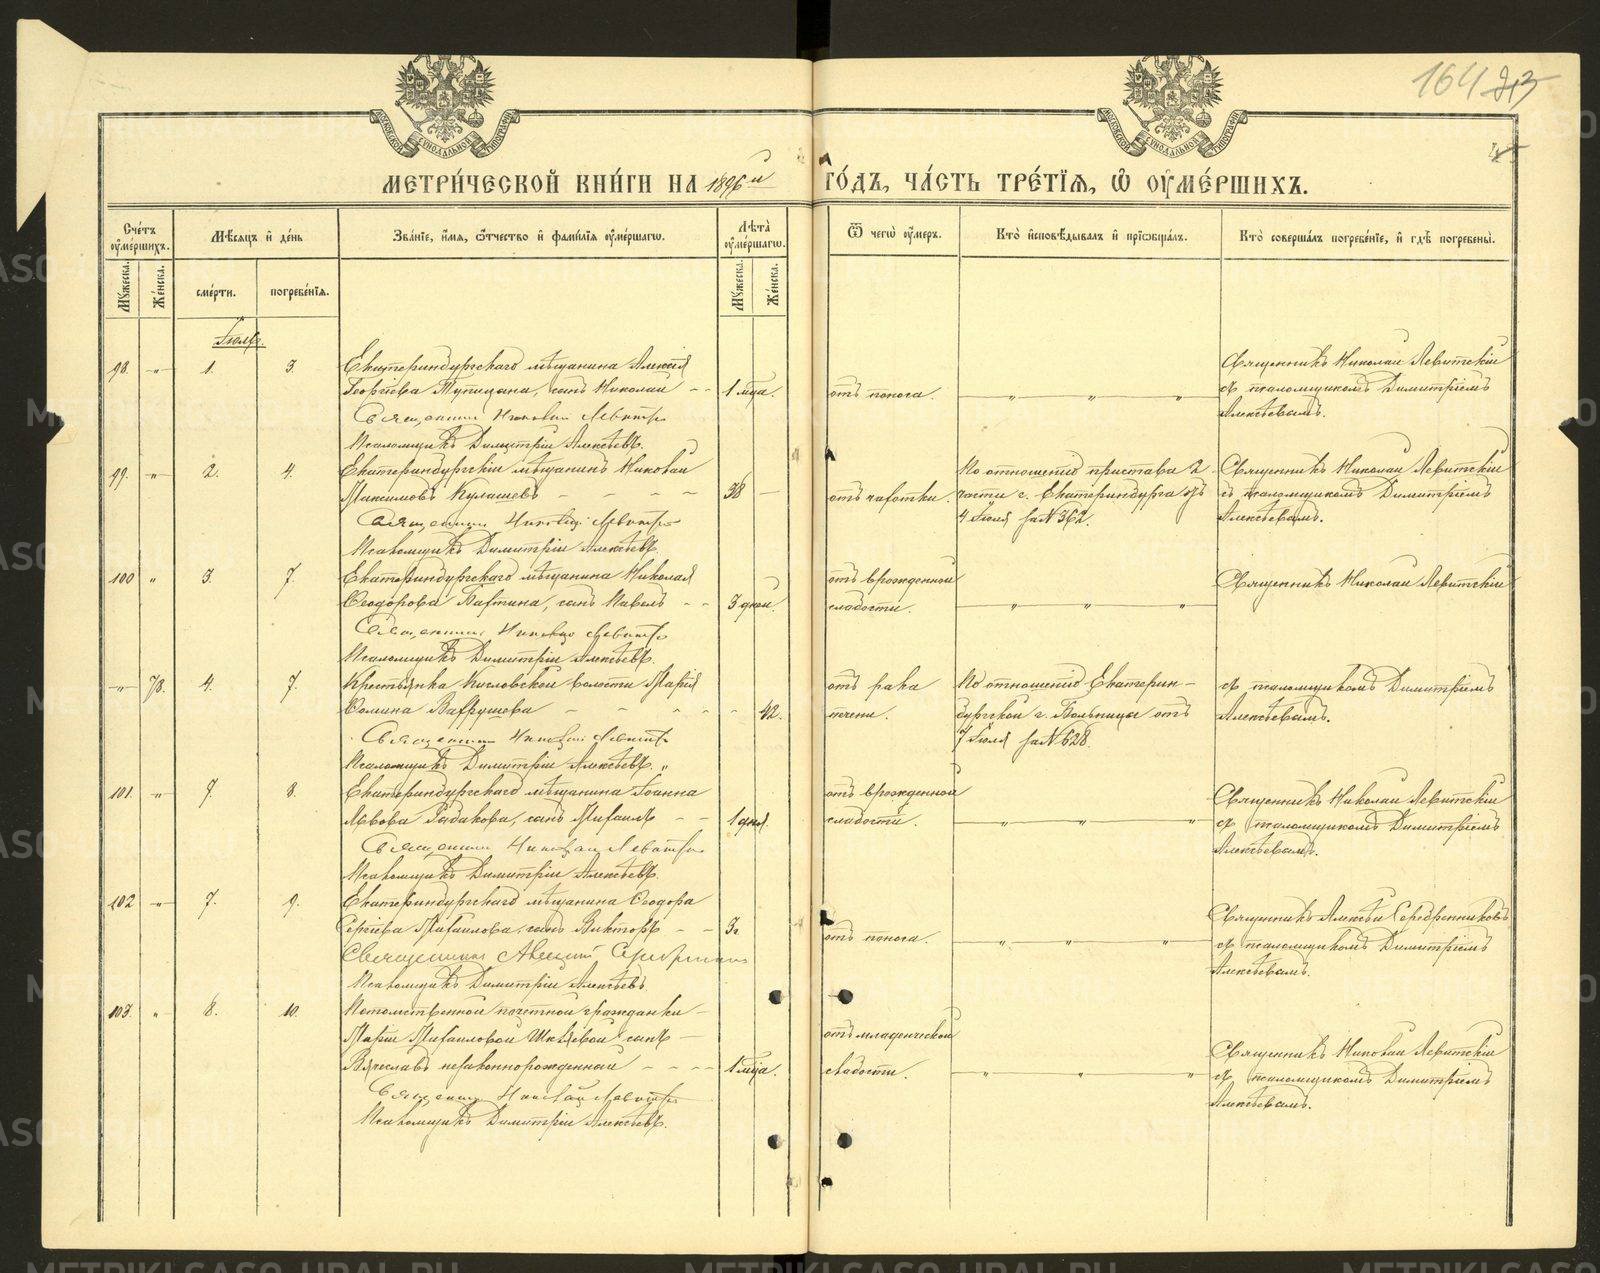 164 213
МЕТРИ́ЧЕСКОЙ КНИ́ГИ НА 1896й ГО́ДЪ, ЧА́СТЬ ТРЕ́ТІѦ, Ѡ҆ ОУ҆МЕ́РШИХЪ.
Сче́тъ оу҆ме́ршихъ.
Мѣсѧцъ и҆ де́нь
Зва́нїе, и҆́мѧ, ѻ҆́тчество и҆ фами́лїѧ оу҆ме́ршагѡ.
Лѣта̀ оу҆ме́ршагѡ.
Ѿ чегѡ̀ оу҆́меръ.
Кто̀ и҆сповѣ́дывалъ и҆ прїѡбща́лъ.
Кто̀ соверша́лъ погребе́нїе, и҆ гдѣ̀ погребены̀.
Мꙋ́жеска.
Же́нска.
сме́рти.
погребе́нїѧ.
Мꙋ́жеска.
Же́нска.
Іюль.
98. -"- 1. 3. Екатеринбургскаго мѣщанина Алексѣя
Георгіева сынъ Николай - - 1 мца. отъ поноса. " " "
Священникъ Николай Левитскій
Псаломщикъ Димитрій Алексѣевъ.
Священникъ Николай Левитскій
съ псаломщикомъ Димитріемъ
Алексѣевымъ.
99. -"- 2. 4. Екатеринбургскій мѣщанинъ Николай
Максимовъ Кулашевъ - - - - 38 - отъ чахотки.
Священникъ Николай Левитскій
Псаломщикъ Димитрій Алексѣевъ.
По отношенію пристава 2
части г. Екатеринбурга отъ
4 Іюля за № 362.
Священникъ Николай Левитскій
съ псаломщикомъ Димитріемъ
Алексѣевымъ.
100 " 3. 7. Екатеринбургскаго мѣщанина Николая
Ѳеодорова сынъ Павелъ - - 3 дней.
Священникъ Николай Левитскій
Псаломщикъ Димитрій Алексѣевъ.
отъ врожденной
слабости. " " "
Священникъ Николай Левитскій
-"- 78. 4. 7. Крестьянка Кисловской волости Марія
Ѳомина Вафрушева - - - - 42.
Священникъ Николай Левитскій
Псаломщикъ Димитрій Алексѣевъ. "
отъ рака
печени.
По отношенію Екатерин-
бургской г. Больницы отъ
7 Іюля за № 628.
съ псаломщикомъ Димитріемъ
Алексѣевымъ.
101. -"- 7. 8. Екатеринбургскаго мѣщанина Іоанна
Львова сынъ Михаилъ - - 1 дня.
Священникъ Николай Левитскій
Псаломщикъ Димитрій Алексѣевъ.
отъ врожденной
слабости. " " "
Священникъ Николай Левитскій
съ псаломщикомъ Димитріемъ
Алексѣевымъ.
102 -"- 7. 9. Екатеринбургскаго мѣщанина Ѳеодора
Сергіева Михаилова, сынъ Викторъ - - 3г
Священникъ Алексій Серебренниковъ
Псаломщикъ Димитрій Алексѣевъ.
отъ поноса. " " "
Священникъ Алексѣй Серебренниковъ
съ псаломщикомъ Димитріемъ
Алексѣевымъ.
103. " 8. 10. Потомственной почетной гражданки
Маріи Михаиловой сынъ -
Вячеславъ незаконнорожденный - - - - 1 мца.
Священникъ Николай Левитскій
Псаломщикъ Димитрій Алексѣевъ.
отъ младенческой
слабости. " " "
Священникъ Николай Левитскій
съ псаломщикомъ Димитріемъ
Алексѣевымъ.